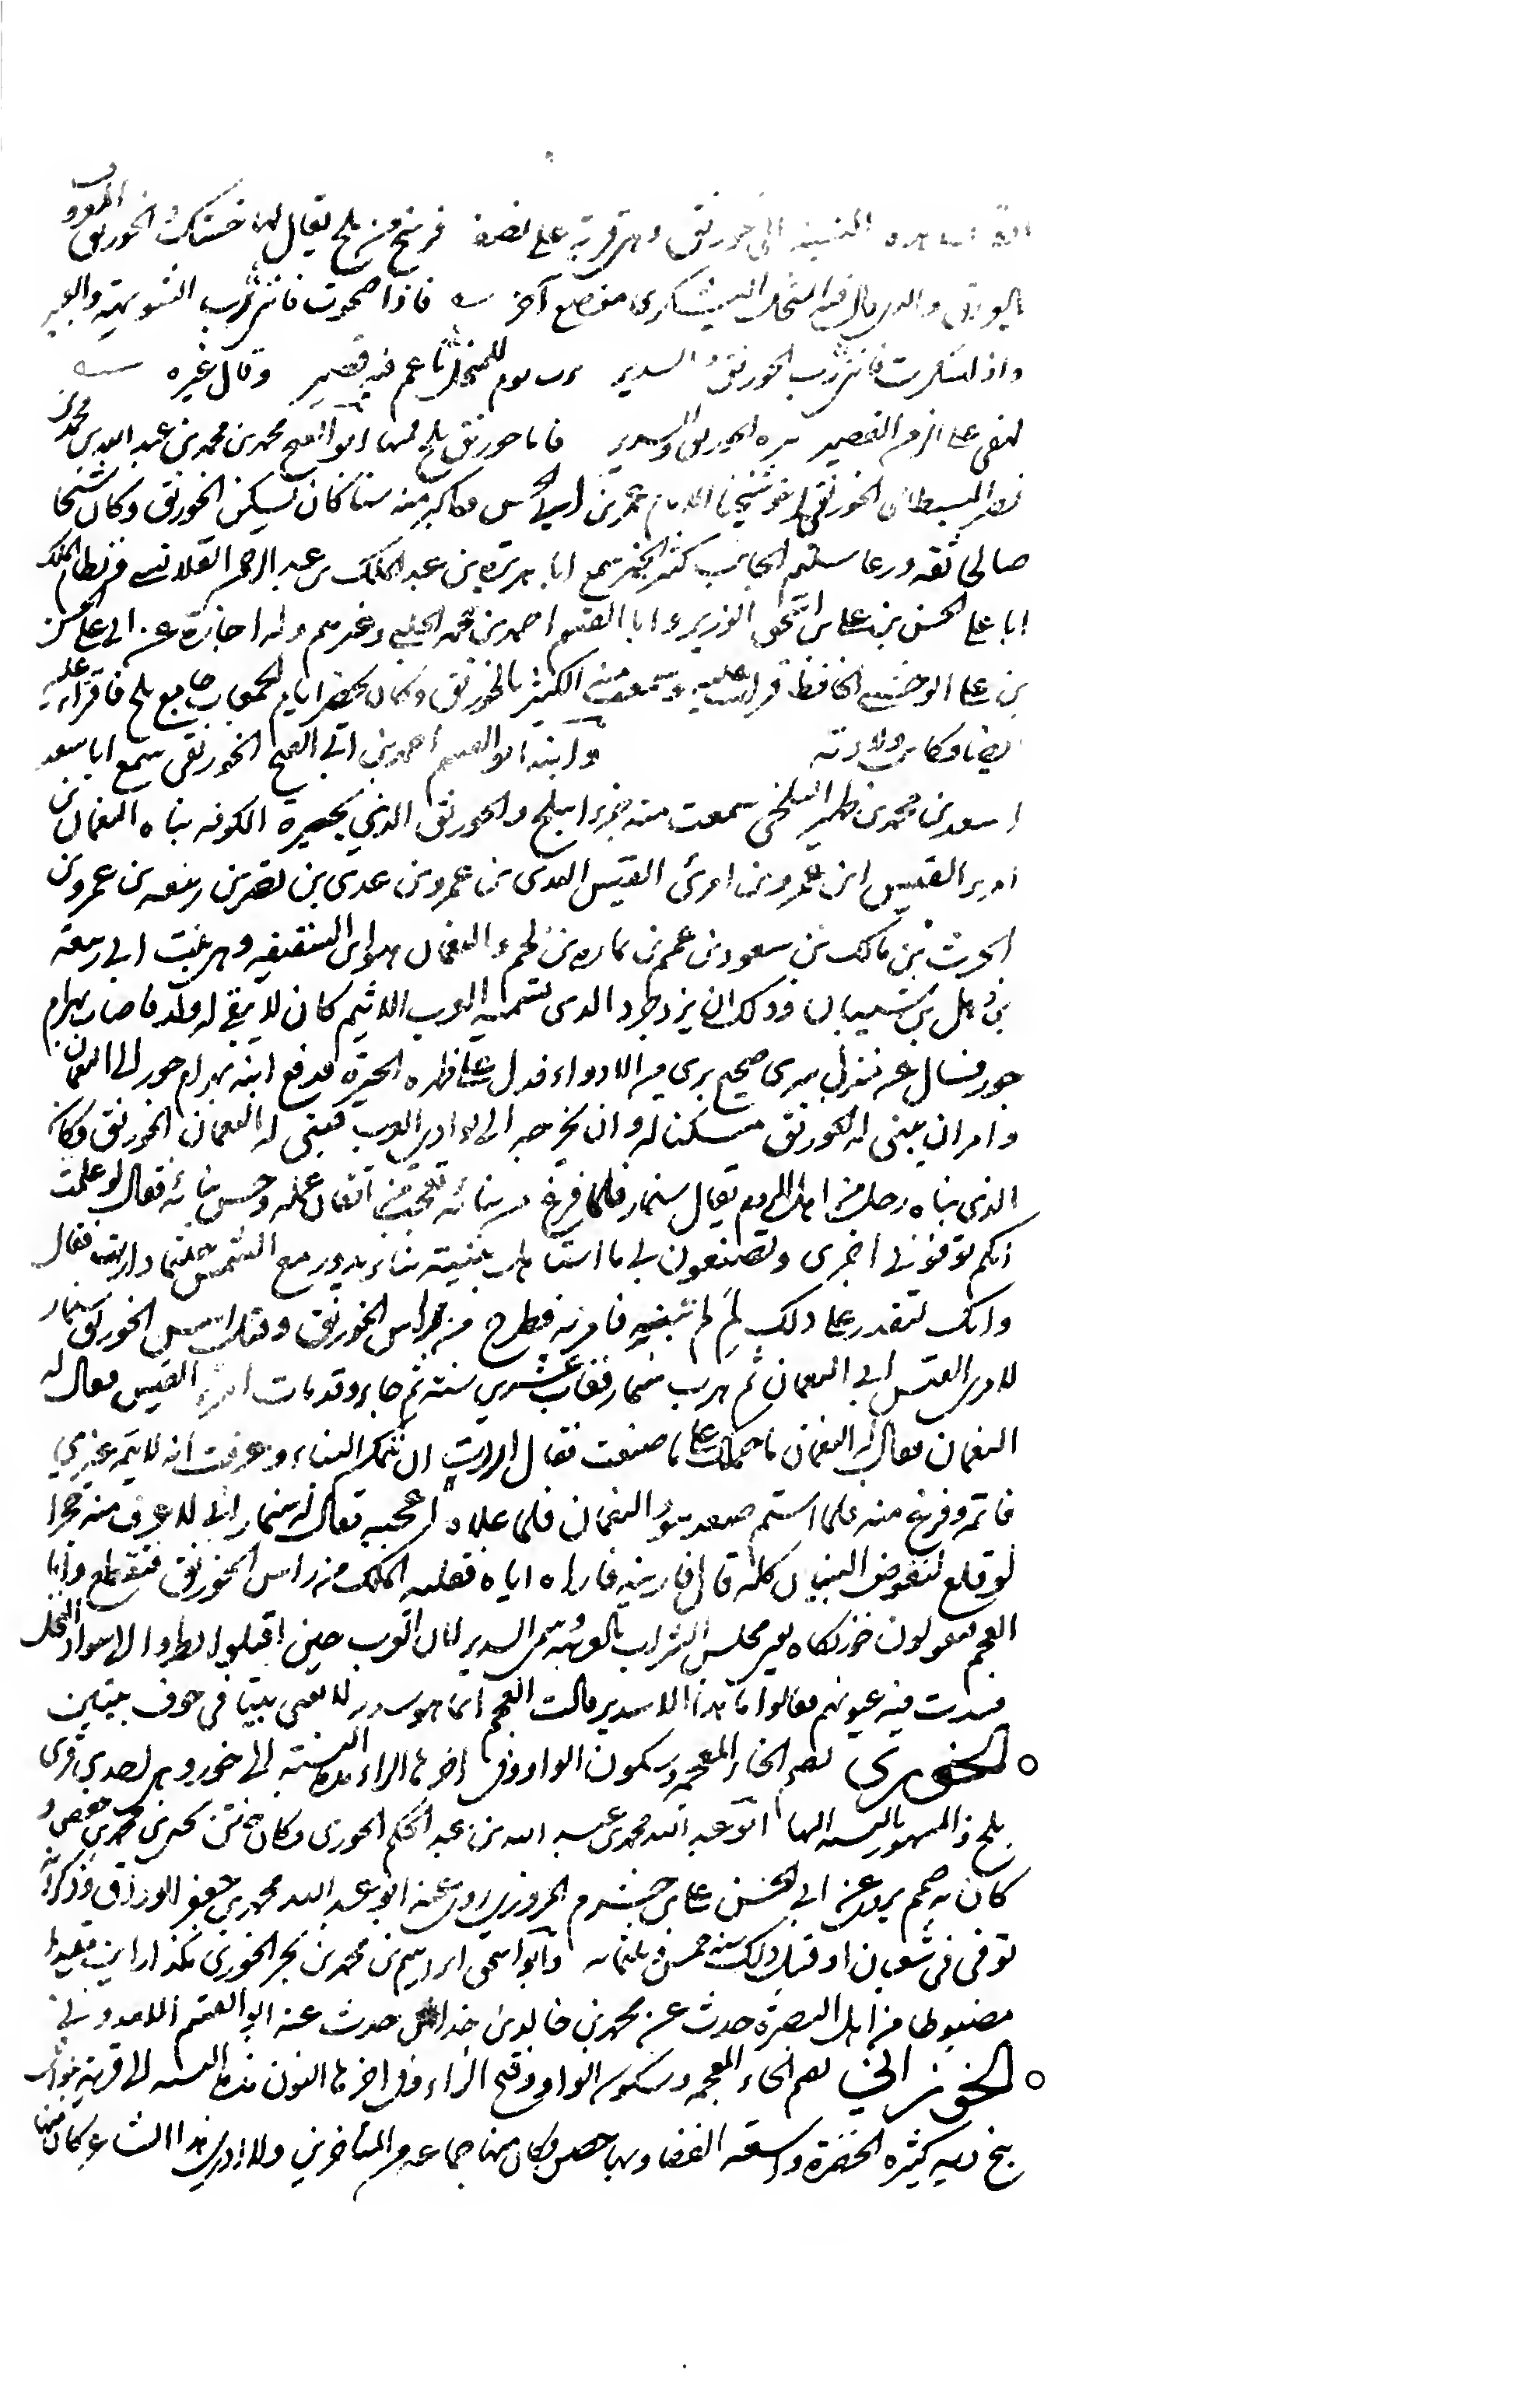 هذه النسبة الى خورنق وهى قرية على نصف فرسخ من بلخ يقال لها خستك والخورنق المعروف
بالعراق والذى قال فيه المنخل اليشكرى مقطع آخر فاذا صحوت فاننى رب الشويهة والبعير
واذا سكرت فاننى رب الخورنق والسدير يا رب يوم للمنخل ناعم فيه قصير وقال غيره
الخورنق والسدير فاما خورنق بلخ منها ابو الفتح محمد بن محمد بن عبد الله بن محمد بن
نصر البسطامى الخورنقى اخو شيخنا الامام عمر بن ابى الحسن وكان اكبر منه سنا كان يسكن الخورنق وكان شيخا
صالحا ثقة ورعا سليم الجانب كثير الخير سمع ابا هريرة بن عبد الملك بن عبد الرحمن القلانسى ونظام الملك
ابا على الحسن بن على بن اسحق الوزير وابا القسم احمد بن محمد الخليلى وغيرهم وله اجازة عن ابى على الحسن
بن على الوخشى الحافظ قرات عليه وسمعت منه الكثير بالخورنق وكان يحضر ايام الجمعات جامع بلخ فاقرا عليه
ايضا وكانت ولادته وابنه ابو القسم احمد بن ابى الفتح الخورنقى سمع ابا سعد
اسعد بن محمد بن ظهير البلخى سمعت منه جزءا ببلخ والخورنق الذى بحيرة الكوفة بناه النعمان بن
امرىء القيس ابن عمرو بن امرئ القيس البدى بن عمرو بن عدى بن نصر بن ربيعة بن عمرو بن
الحرث بن مالك بن سعود بن عمم بن نماره بن لخم والنعمان هو ابن الشقيقة وهى بنت ابى ربيعة
بن ذهل بن شيبان وذلك ان يزدجرد الذى تسميه العرب الاثيم كان لا يبقى له ولد فاصاب بهرام
جور فسال عن منزل برى صحيح برى من الادواء فدل على ظهر الحيرة فدفع ابنه بهرام جور الى النعمان
وامر ان يبنى له الخورنق مسكنا له وان يخرجه الى بوادى العرب فبنى له النعمان الخورنق وكان
الذى بناه رجل من اهل الروم يقال سنمار فلما فرغ من بنائه تعجب من اتقان عمله وحسن بنائه فقال لو علمت
انكم توفونى اجرى وتصنعون بى ما استاهله بنيته بناء يدور مع الشمس حيثما دارت فقال
وانك لتقدر على ذلك لم لم تبنه فامر به فطرح من راس الخورنق وقيل اسس الخورنق سنمار
لامرى القيس ابى النعمان ثم هرب سنمار فغاب عشرين سنة ثم جاء وقد مات امرؤ القيس فقال له
النعمان فقال له النعمان ما حملك على ما صنعت فقال اردت ان يتمكن البناء وعرفت انه لا يتمه غيرى
فاتمه وفرغ منه فلما استتم صعد هو والنعمان فلما علاه اعجبه فقال له سنمار انى لاعرف منه حجرا
لو قلع لتقوض البنيان كله قال فارنيه فاراه اياه فقلبه الملك من راس الخورنق فتقطع واما
العجم فيقولون خرنكاه يعنى مجلس الشراب بالعربية سمى السدير لان العرب حين اقبلوا نظروا الى سواد النخل
فسدرت فيه عيونهم فقالوا ما هذا الا سدير قالت العجم انما هو سه در لا يعنى بيتا فى جوف بيتين
الخورى بضم الخاء المعجمة وسكون الواو وفى اخرها الراء هذه النسبة الى خور وهى احدى قرى
بلخ والمشهور بالنسبة اليها ابو عبد الله محمد بن عبد الله بن عبد الحكم الخورى وكان ختن يحيى بن محمد بن حفص و
كان به صمم يروى عن ابى الحسن على بن خشرم المروزى روى عنه ابو عبد الله محمد بن جعفر الوراق وذكر انه
توفى فى شعبان او قبل ذلك سنة خمس وثلثمائة وابو اسحق ابراهيم بن محمد بن بحر الخورى هكذا رايت مقيدا
مضبوطا من اهل البصرة حدث عن محمد بن خالد بن خداش حدث عنه ابو القسم الابندونى
الخوزانى بضم الخاء المعجمة وسكون الواو وفتح الزاء وفى اخرها النون هذه النسبة الى قرية خوزان
بنج ديه كثيرة الخضرة واسعة الفضا وبها حصن وكان منها جماعة من المتاخرين ولا ادرى هذا الشاعر كان منها